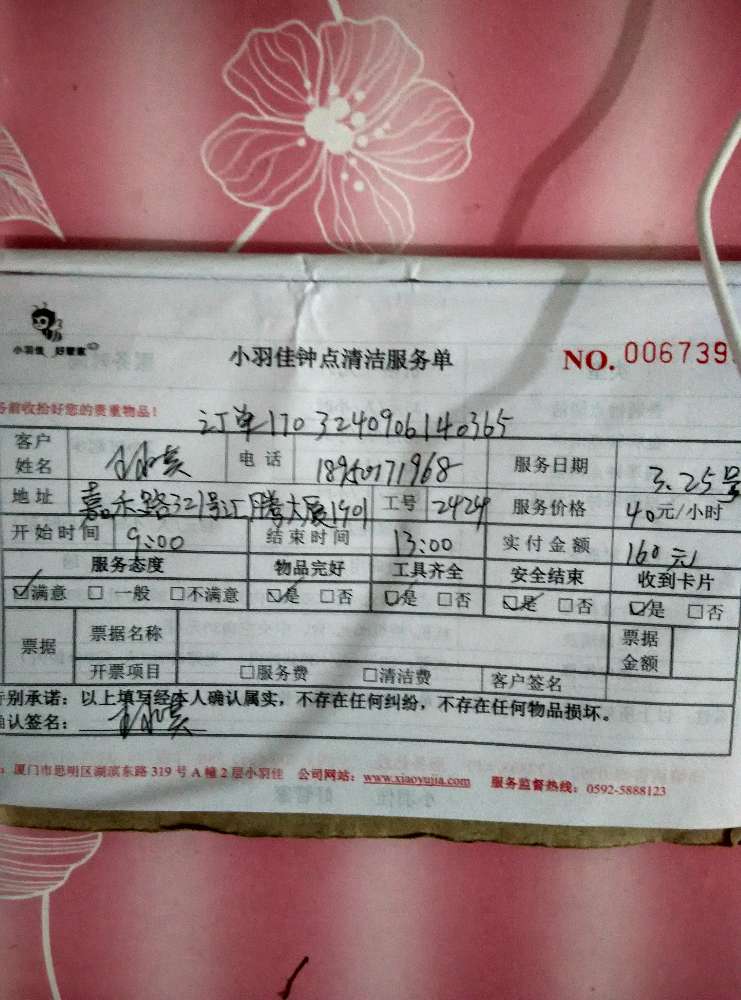 小羽佳 好管家
小羽佳钟点清洁服务单 NO. 006739
前收拾好您的贵重物品!
订单1703240906140365
客户姓名 电话 18950771968 服务日期 3.25号
地址 嘉禾路321号汇腾大厦1901 工号 2424 服务价格 40元/小时
开始时间 9:00 结束时间 13:00 实付金额 160元
服务态度 物品完好 工具齐全 安全结束 收到卡片
☑满意 □一般 □不满意 ☑是 □否 ☑是 □否 ☑是 □否 ☑是 □否
票据 票据名称 票据金额
开票项目 □服务费 □清洁费 客户签名
别承诺：以上填写经本人确认属实，不存在任何纠纷，不存在任何物品损坏。
认签名：
：厦门市思明区湖滨东路 319 号 A 幢 2 层小羽佳 公司网站：www.xiaoyujia.com 服务监督热线：0592-5888123